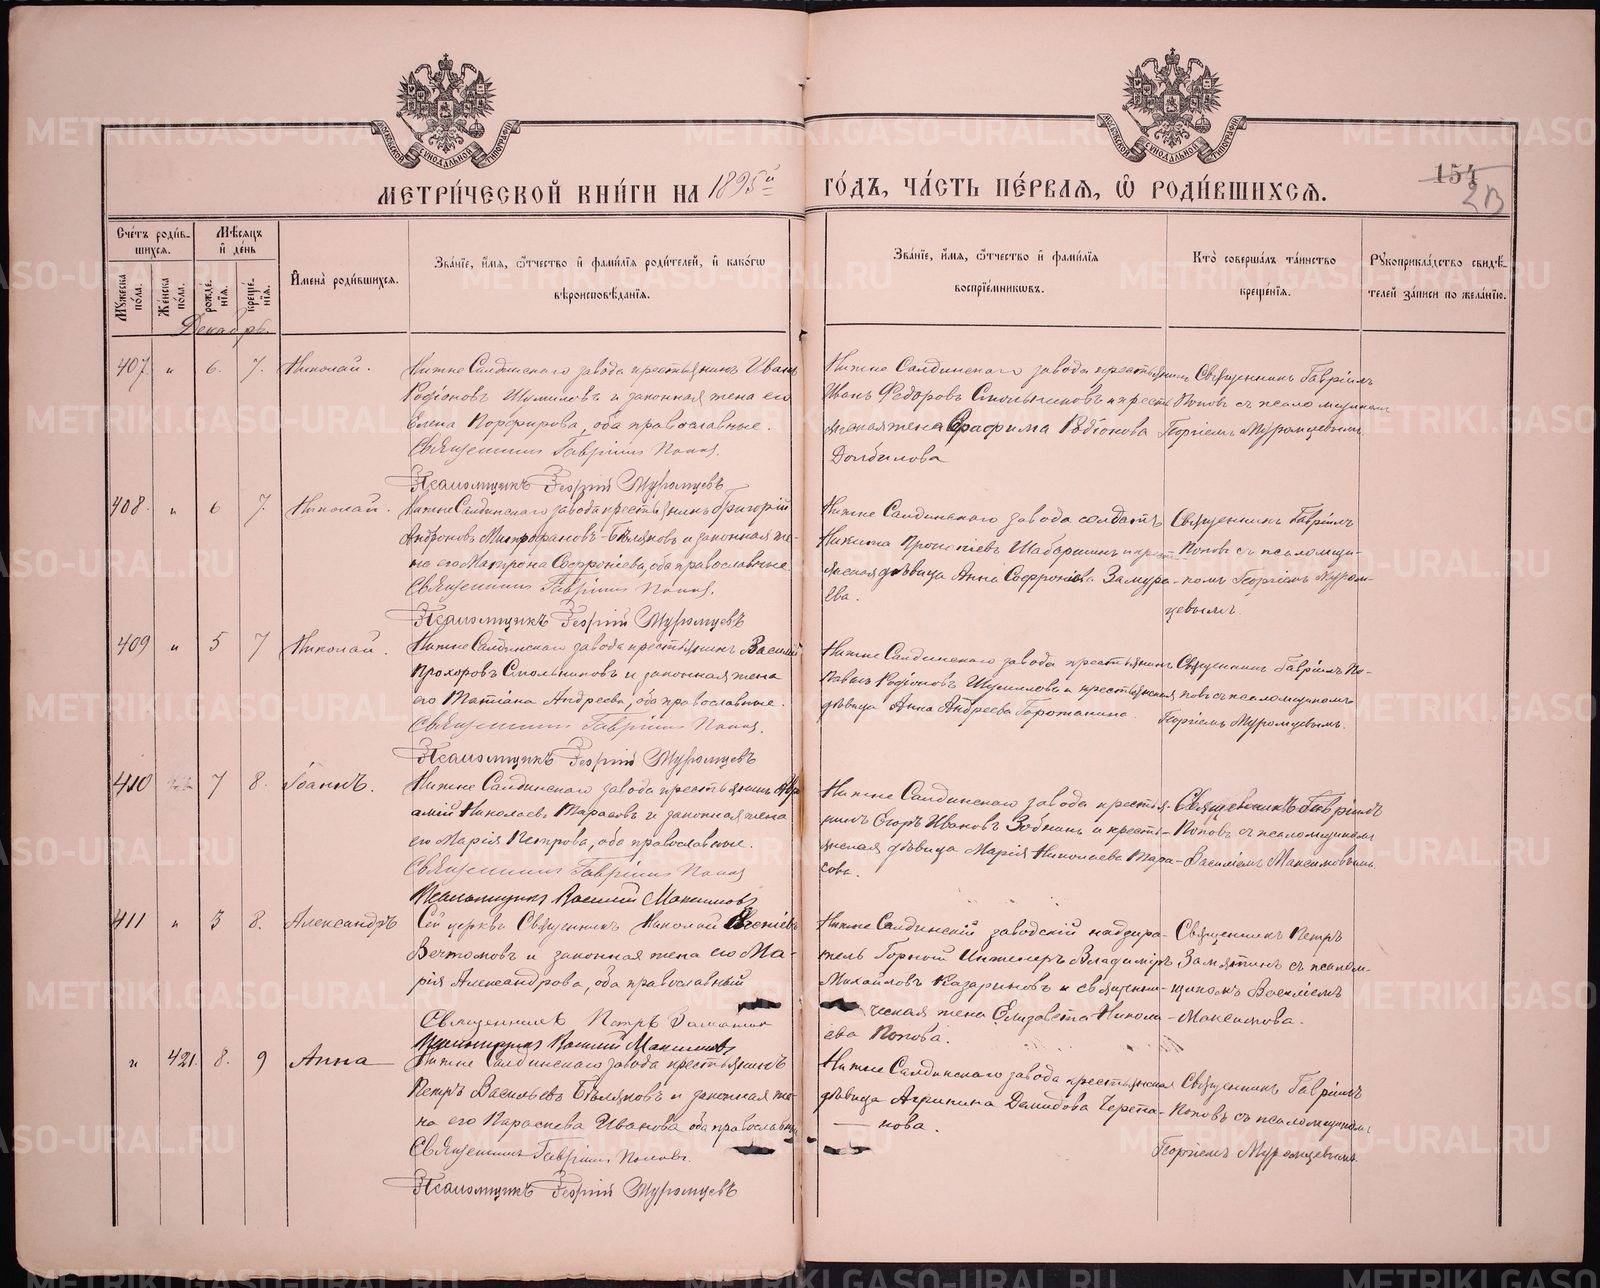 МОСКОВСКОЙ СѴНОДАЛЬНОЙ ТИПОГРАФІИ
МОСКОВСКОЙ СѴНОДАЛЬНОЙ ТИПОГРАФІИ
МЕТРИ́ЧЕСКОЙ КНИ́ГИ НА 1895й
ГО́ДЪ, ЧА́СТЬ ПЕ́РВАЯ, Ѿ РОДИ́ВШИХСЯ.
154
Сче́тъ роди́в-
шихся.
Мꙋжеска по́ла.
Же́нска по́ла.
Мѣ́сяцъ
и҆ де́нь
рожде-
нїя.
креще-
нїя.
Декабрь.
И҆мена̀ роди́вшихся.
Зва́нїе, и҆́мя, ѻ҆́тчество и҆ фами́лїя роди́телей, и҆ како́гѡ
вѣроисповѣ́данїя.
Зва́нїе, и҆́мя, ѻ҆́тчество и҆ фами́лїя
воспрїе́мникѡвъ.
Кто̀ соверша́лъ та́инство
креще́нїя.
Рꙋкоприкла́дство свидѣ́-
телей за́писи по жела́нїю.
407 „ 6. 7. Николай.
Нижне Салдинскаго завода крестьянинъ Иванъ
Родіоновъ Шумиловъ и законная жена его
Елена Порфирова, оба православные.
Священникъ Гавріилъ Поповъ.
Псаломщикъ Георгій Муромцевъ
Нижне Салдинскаго завода крестьянинъ
Иванъ Ѳедоровъ Стольниковъ и кресть
янская жена Серафима Родіонова
Долбилова
Священникъ Гавріилъ
Поповъ съ псаломщикомъ
Георгіемъ Муромцевымъ
408. „ 6 7. Николай.
Нижне Салдинскаго завода крестьянинъ Григорій
Андроновъ Митрофановъ-Бѣляковъ и законная же-
на его Матрона Софроніева, оба православные
Священникъ Гавріилъ Поповъ.
Псаломщикъ Георгій Муромцевъ
Нижне Салдинскаго завода солдатъ
Никита Прокопіевъ Шабаршинъ и крест
янская дѣвица Анна Софроніева Замура-
ева.
Священникъ Гавріилъ
Поповъ съ псаломщи-
комъ Георгіемъ Муром-
цевымъ.
409 „ 5 7 Николай.
Нижне Салдинскаго завода крестьянинъ Василій
Прохоровъ Стольниковъ и законная жена
его Татіана Андреева, оба православные.
Священникъ Гавріилъ Поповъ.
Псаломщикъ Георгій Муромцевъ
Нижне Салдинскаго завода крестьянинъ
Павелъ Родіоновъ Шумиловъ и крестьянская
дѣвица Анна Андреева Горожанина.
Священникъ Гавріилъ По-
повъ съ псаломщикомъ
Георгіемъ Муромцевымъ.
410 7 8. Іоаннъ.
Нижне Салдинскаго завода крестьянинъ Авра
амій Николаевъ Тарасовъ и законная жена
его Марія Петрова, оба православные.
Священникъ Гавріилъ Поповъ
Псаломщикъ Василій Максимовъ
Нижне Салдинскаго завода крестья-
нинъ Егоръ Ивановъ Зобнинъ и кресть-
янская дѣвица Марія Николаева Тара-
сова.
Священникъ Гавріилъ
Поповъ съ псаломщикомъ
Василіемъ Максимовымъ.
411 „ 3 8. Александръ
Сей церкви Священникъ Николай
и законная жена его Ма-
рія Александрова, оба православный
Священникъ Петръ Замятинъ
Псаломщикъ Василій Максимовъ
Нижне Салдинскій заводскій надзира-
тель Горный Инженеръ Владиміръ
Михайловъ Казариновъ и священни-
ческая жена Елизавета Никола-
ева Попова.
Священникъ Петръ
Замятинъ съ псалом-
щикомъ Василіемъ
Максимова.
„ 421. 8. 9 Анна
Нижне Салдинскаго завода крестьянинъ
Петръ Васильевъ Бѣляковъ и законная же-
на его Параскева Иванова оба православны
Священникъ Гавріилъ Поповъ.
Псаломщикъ Георгій Муромцевъ
Нижне Салдинскаго завода крестьянская
дѣвица Агрипина Демидова Черепа-
нова.
Священникъ Гавріилъ
Поповъ съ псаломщикомъ
Георгіемъ Муромцевымъ.
METRIKI.GASO-URAL.RU